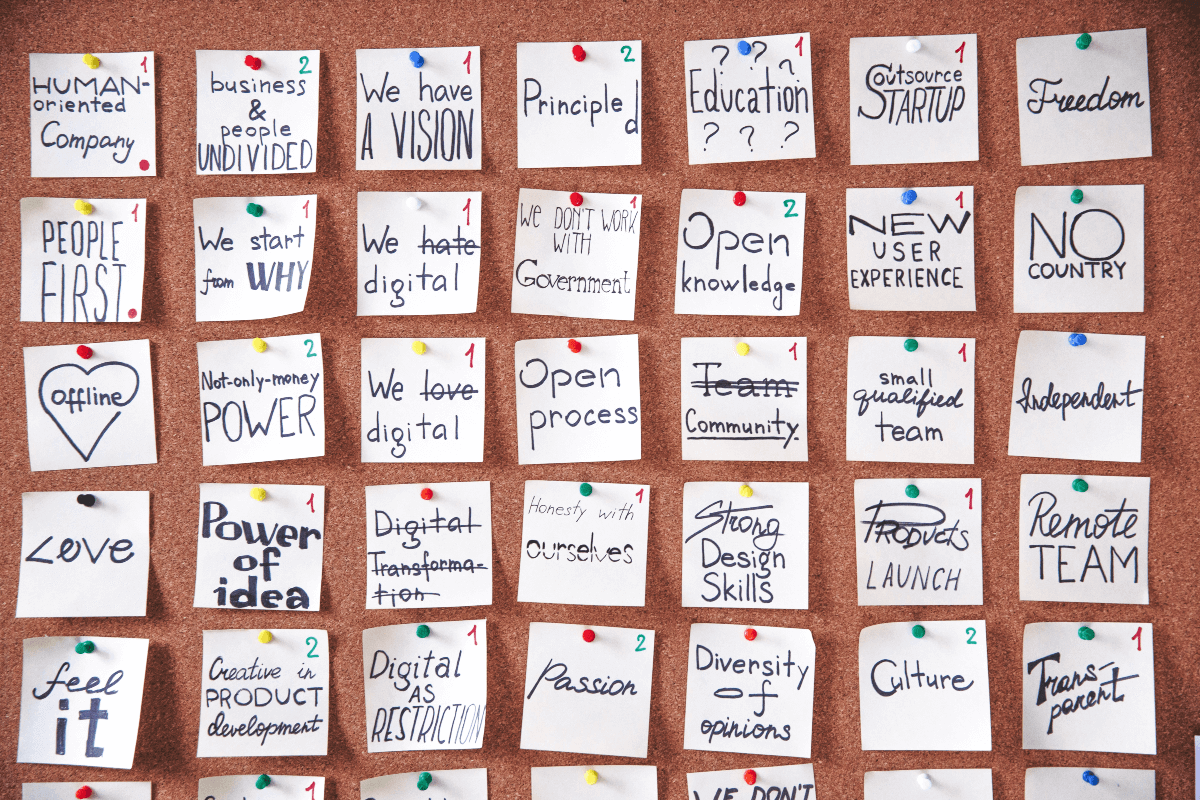 1
HUMAN-
oriented
Company
2
business
&
people
UNDIVIDED
1
We have
A VISION
2
Principled
1
? ? ?
Education
? ? ?
1
Outsource
STARTUP
Freedom
1
PEOPLE
FIRST.
1
We start
from WHY
1
We hate
digital
1
We DON'T WORK
WITH
Government
2
Open
knowledge
1
NEW
USER
EXPERIENCE
NO
COUNTRY
offline
2
Not-only-money
POWER
1
We love
digital
Open
process
1
Team
Community.
1
small
qualified
team
Independent
Love
1
Power
of
idea
Digital
Transforma-
tion
1
Honesty with
ourselves
Strong
Design
Skills
1
Products
LAUNCH
Remote
TEAM
feel
it
2
Creative in
PRODUCT
development
1
Digital
AS
RESTRICTION
2
Passion
Diversity
of
opinions
2
Culture
1
Trans-
parent
1
WE DON'T